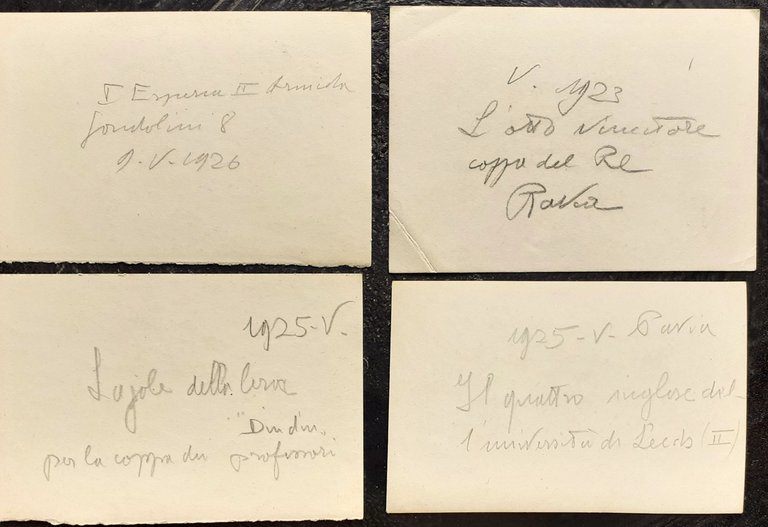 I Esperia II Armida
Gondolini 8
9-V-1926
V. 1923
L'otto vincitore
coppa del Re
Pavia
1925-V-
per la coppa dei professori
"Dindin"
1925-V- Pavia
Il quattro inglese del-
l'università di Leeds (II)